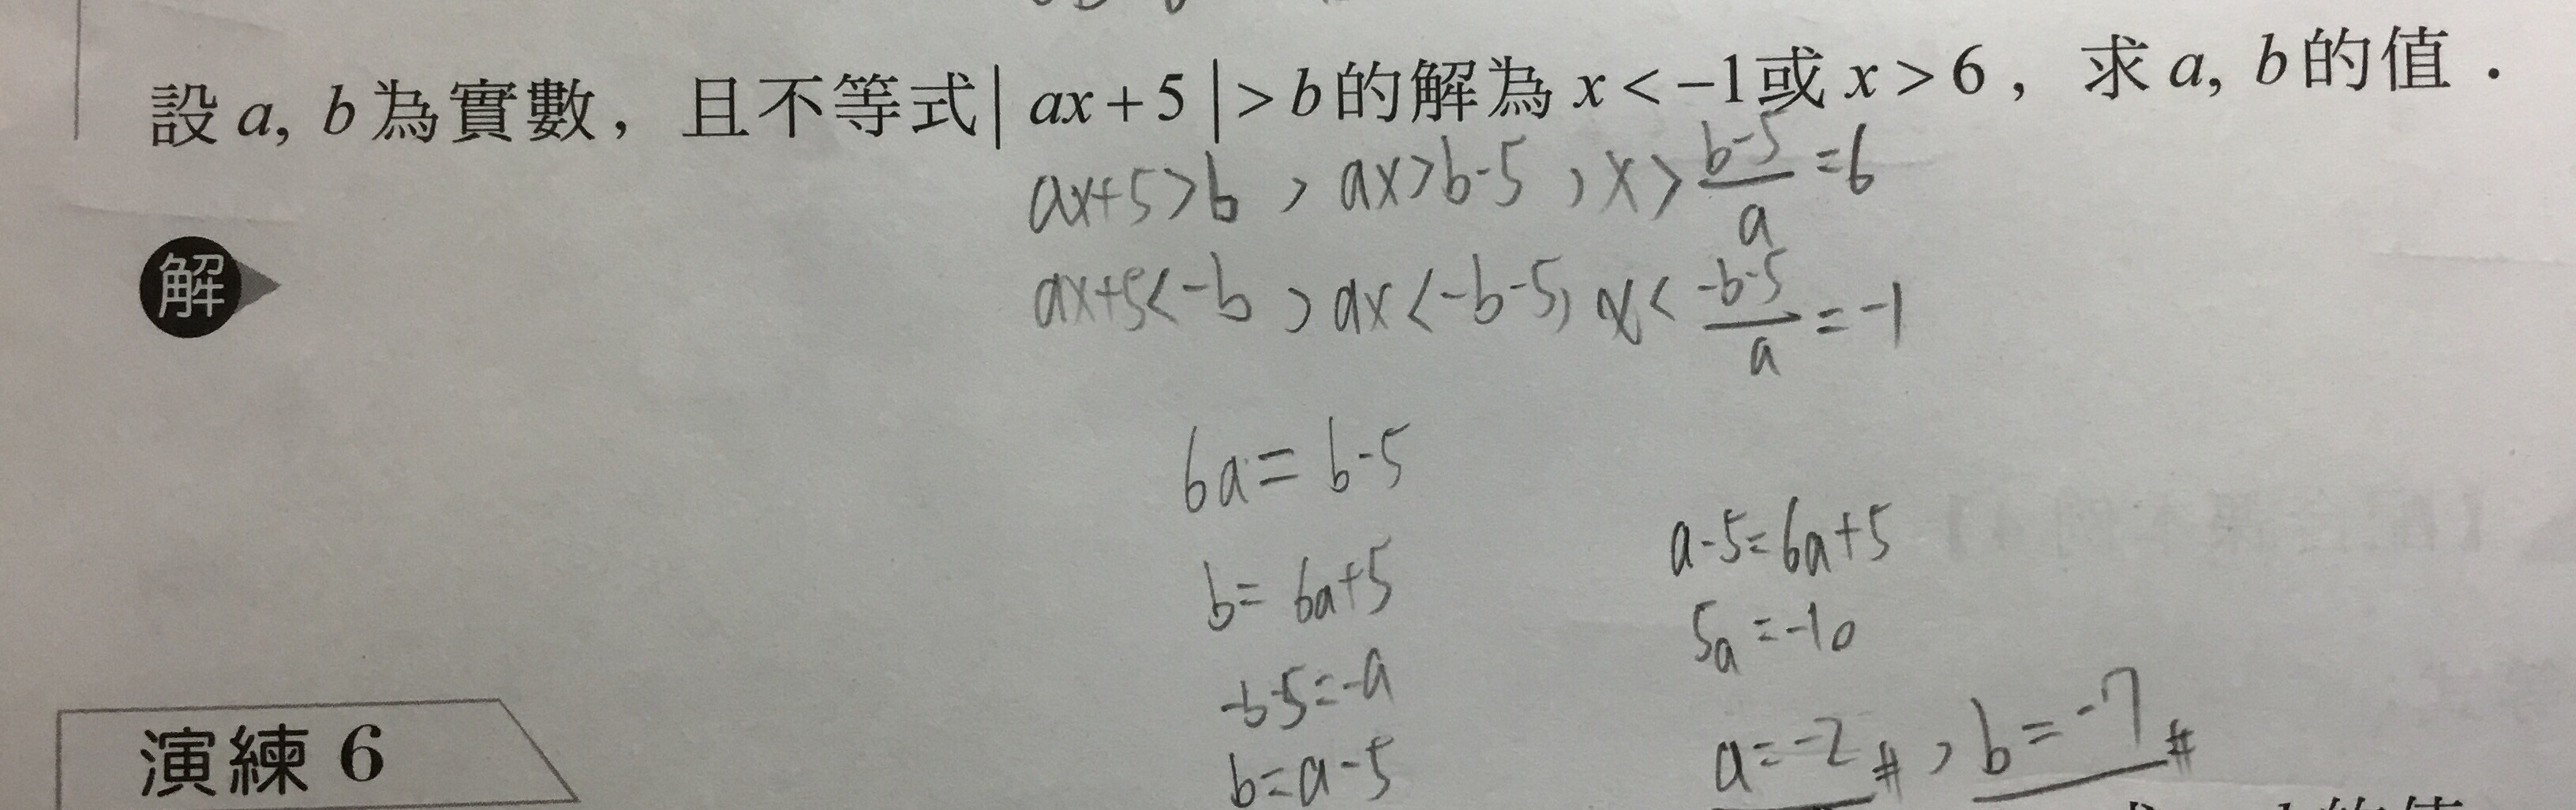 設 a, b 為實數，且不等式 | ax + 5 | > b 的解為 x < −1 或 x > 6，求 a, b 的值．
ax+5>b , ax>b-5 , x> \frac{b-5}{a} =6
解
ax+5<-b , ax<-b-5, x< \frac{-b-5}{a} =-1
6a=b-5
a-5=6a+5
b=6a+5
5a=-10
-b-5=-a
a=-2# , b=-7#
b=a-5
演練 6